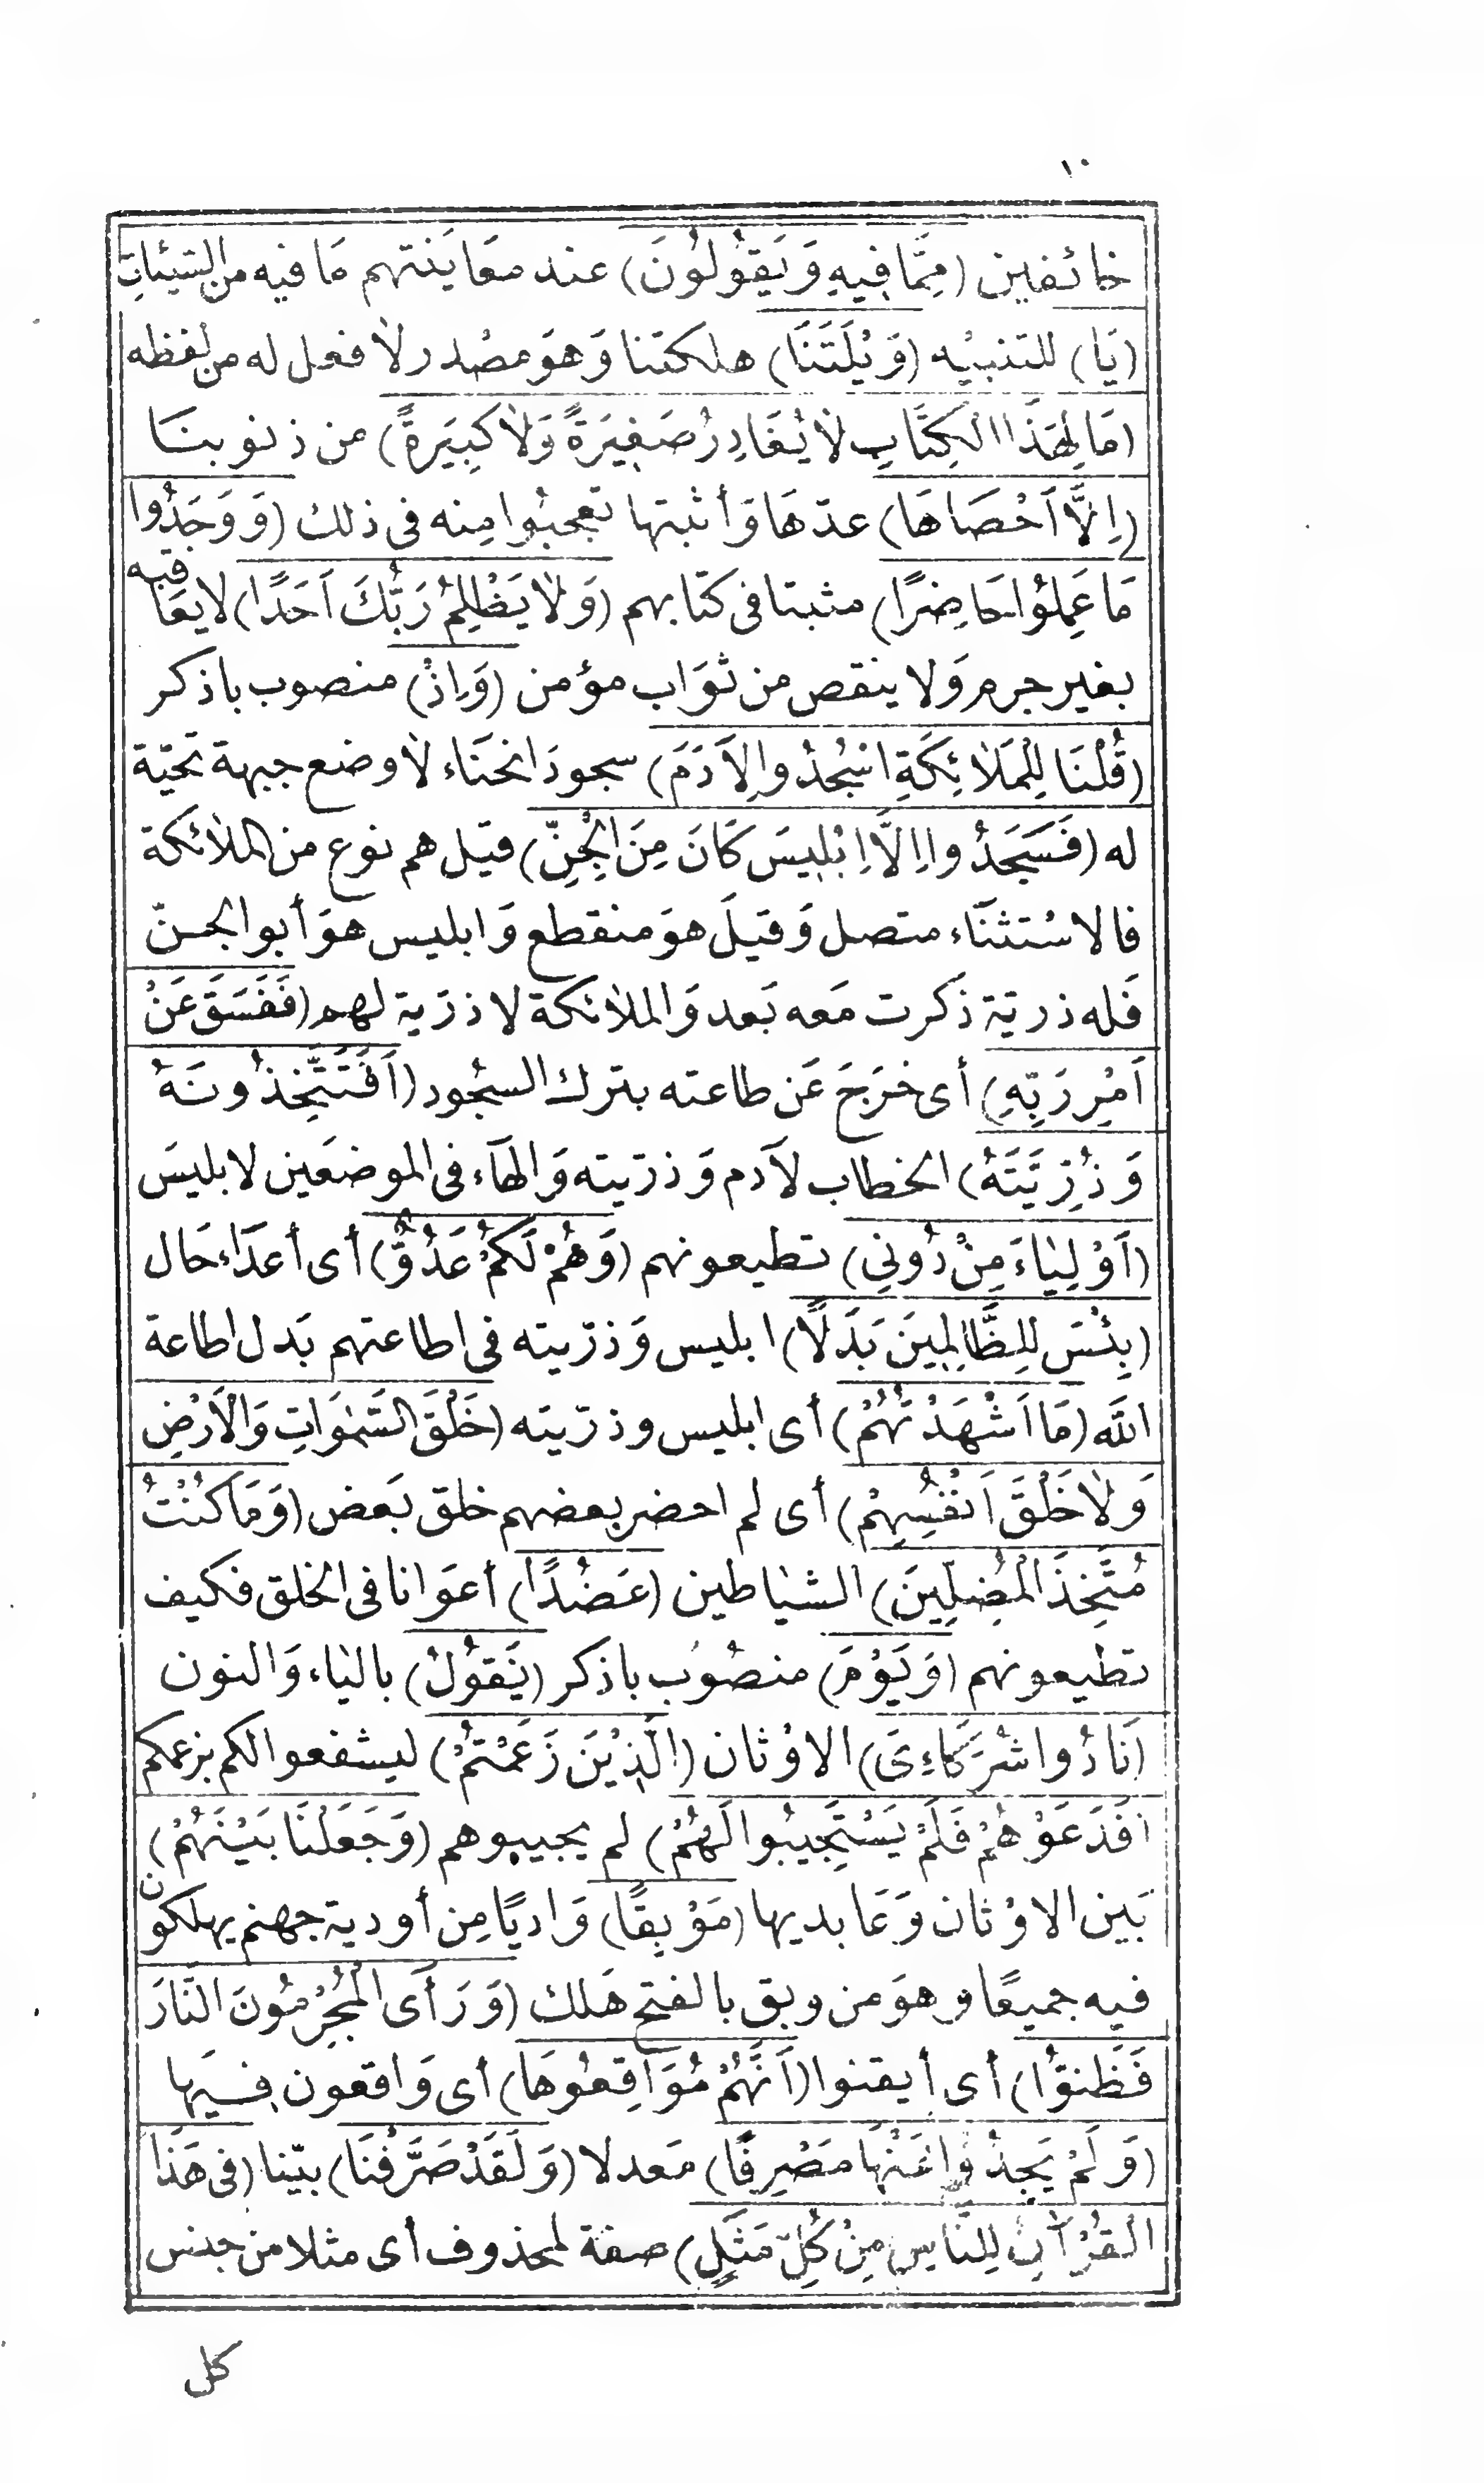 ١٠
خائفين (مِمَّا فِيهِ وَيَقُولُونَ) عند معَاينتهم مَا فيه من السّيئاتِ
(يَا) للتنبيْه (وَيْلَتَنَا) هلكتنا وَهوَ مصْدر لا فعل له من لفظه
(مَا لِهَذَا الْكِتَابِ لَا يُغَادِرُ صَغِيرَةً وَلَا كَبِيَرةً) من ذنوبنَا
(اِلَّا اَحْصَاهَا) عدّهَا وَأثبتها تعجبُوا مِنه فى ذلك (وَوَجَدُوا
مَا عَمِلُوا حَاضِرًا) مثبتا فى كتَابهم (وَلَا يَظْلِمُ رَبُّكَ اَحَدًا) لا يعَاقبه
بغير جرم وَلا ينقص من ثوَاب مؤمن (وَاِذْ) منصوب باذكر
(قُلْنَا لِلْمَلَائِكَةِ اسْجُدُوا لِاَدَمَ) سجودَ انحنَاء لا وضع جبهة تحيّة
له (فَسَجَدُوا اِلَّا اِبْلِيسَ كَانَ مِنَ الْجِنِّ) قيل هم نوع من الملائكة
فالاسْتثنَاء متصل وَقيلَ هوَ منقطع وَابليس هوَ أبو الجنّ
فَله ذريّة ذكرت مَعه بَعد وَالملائكة لا ذرّية لهم (فَفَسَقَ عَنْ
اَمْرِ رَبِّهِ) أى خرَجَ عَن طاعته بترك السجُود (اَفَتَتَّخِذُونَهُ
وَذُرِّيَّتَهُ) الخطاب لآدم وَذرّيته وَالهَاء فى الموضعَين لابليسَ
(اَوْلِيَاءَ مِنْ دُونِى) تطيعونهم (وَهُمْ لَكُمْ عَدُوٌّ) أى أعدَاء حَال
(بِئْسَ لِلظَّالِمِينَ بَدَلًا) ابليس وَذرّيته فى اطاعتهم بَدل اطاعة
الله (مَا اَشْهَدْتُهُمْ) أى ابليس وذرّيته (خَلْقَ السَّمٰوَاتِ وَالْاَرْضِ
وَلَا خَلْقَ اَنْفُسِهِمْ) أى لم احضر بعضهم خلق بَعض (وَمَا كُنْتُ
مُتَّخِذَ الْمُضِلِّينَ) الشيَاطين (عَضُدًا) أعوَانا فى الخلق فكيف
تطيعونهم (وَيَوْمَ) منصُوب باذكر (يَقُولُ) باليَاء وَالنون
(نَادُوا شُرَكَاءِىَ) الاوْثان (الَّذِيْنَ زَعَمْتُمْ) ليشفعوا لكم بزعمكم
(فَدَعَوْهُمْ فَلَمْ يَسْتَجِيبُوا لَهُمْ) لم يجيبوهم (وَجَعَلْنَا بَيْنَهُمْ)
بَين الاوْثان وَعَابديها (مَوْبِقًا) وَاديًا مِن أودية جهنم يهلكون
فيه جميعًا وهوَ من وبق بالفتح هَلك (وَرَأَى الْمُجْرِمُونَ النَّارَ
فَظَنُّوا) أى أيقنوا (اَنَّهُمْ مُوَاقِعُوهَا) أى وَاقعون فيهَا
(وَلَمْ يَجِدُوا عَنْهَا مَصْرِفًا) مَعدلا (وَلَقَدْ صَرَّفْنَا) بيّنا (فى هَذَا
الْقُرْآنِ لِلنَّاسِ مِنْ كُلِّ مَثَلٍ) صفة لمحذوف أى مثلا من جنس
كل